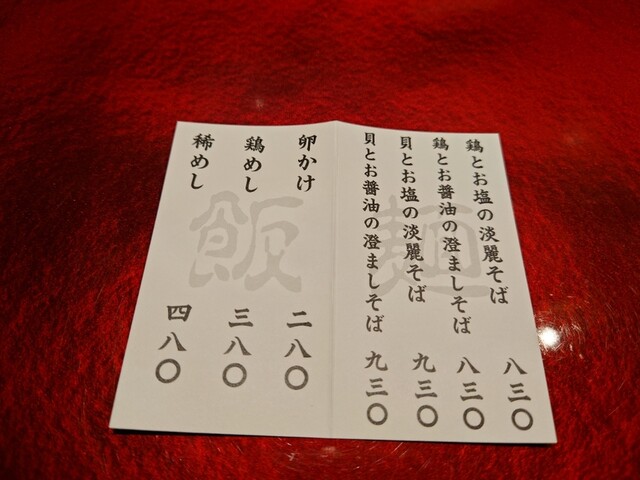 麺
鶏とお塩の淡麗そば 八三〇
鶏とお醤油の澄ましそば 八三〇
貝とお塩の淡麗そば 九三〇
貝とお醤油の澄ましそば 九三〇
飯
卵かけ 二八〇
鶏めし 三八〇
稀めし 四八〇